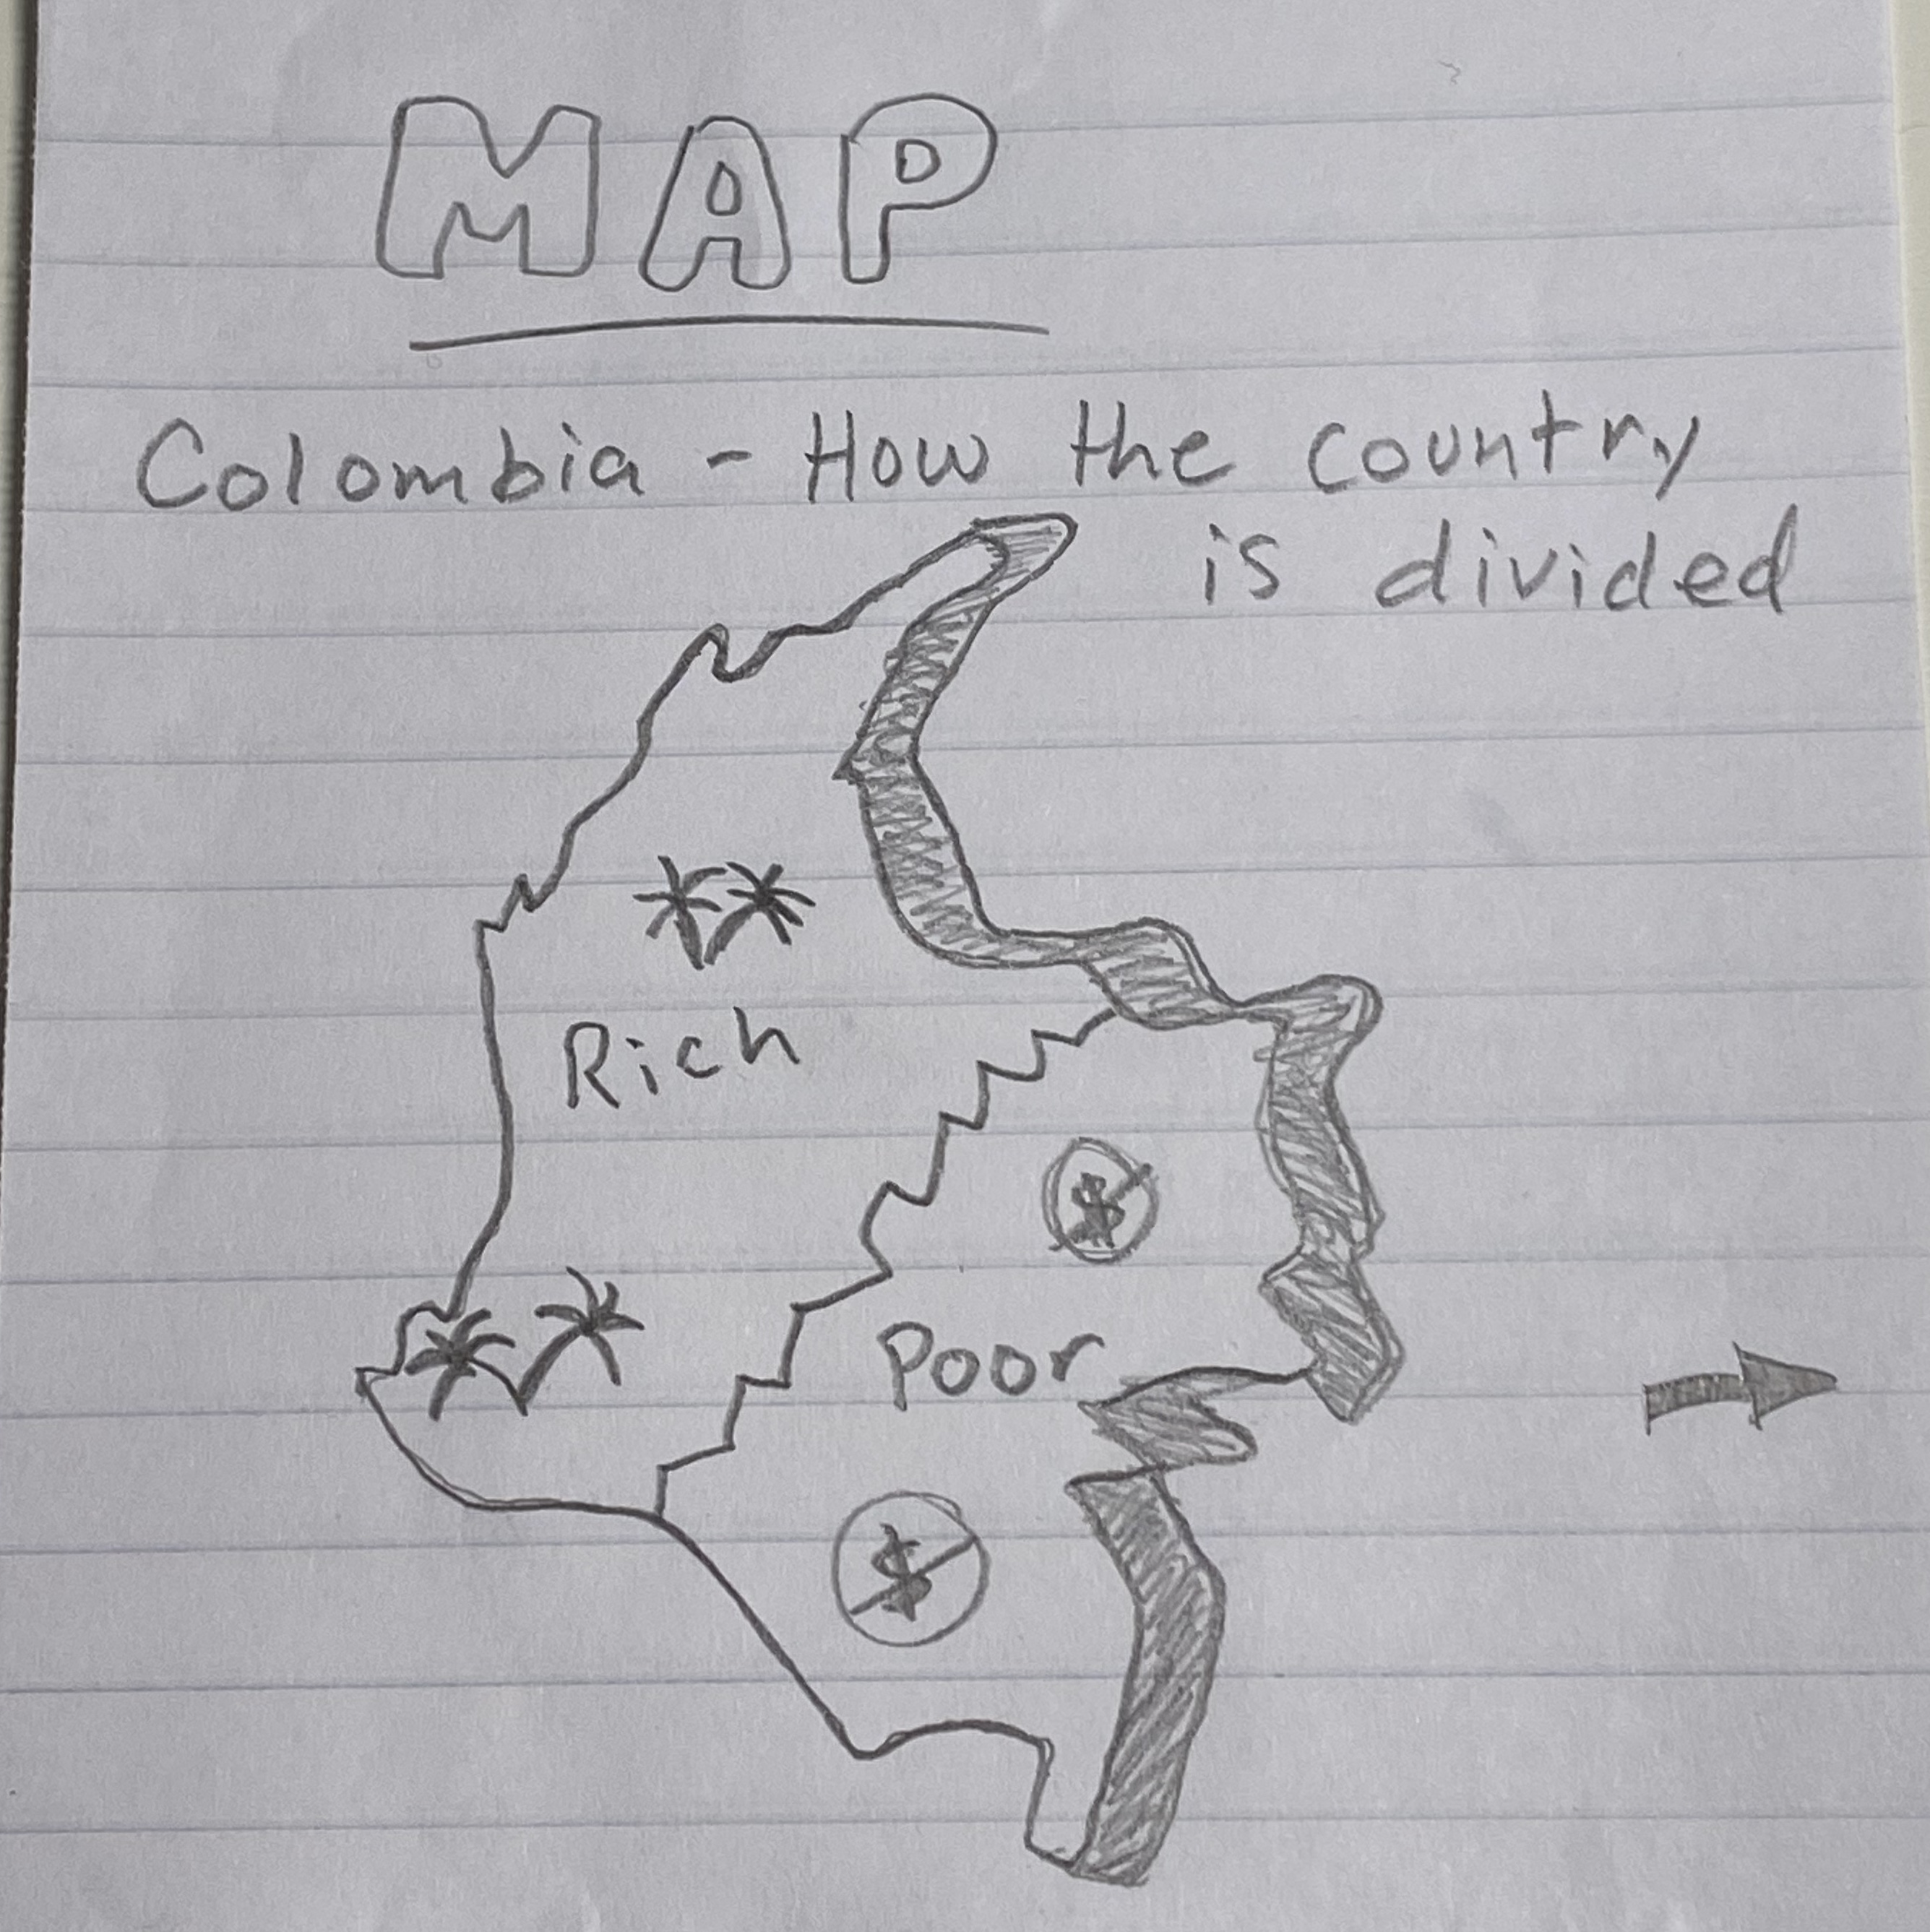 MAP
Colombia - How the country
is divided
Rich
$
Poor
$